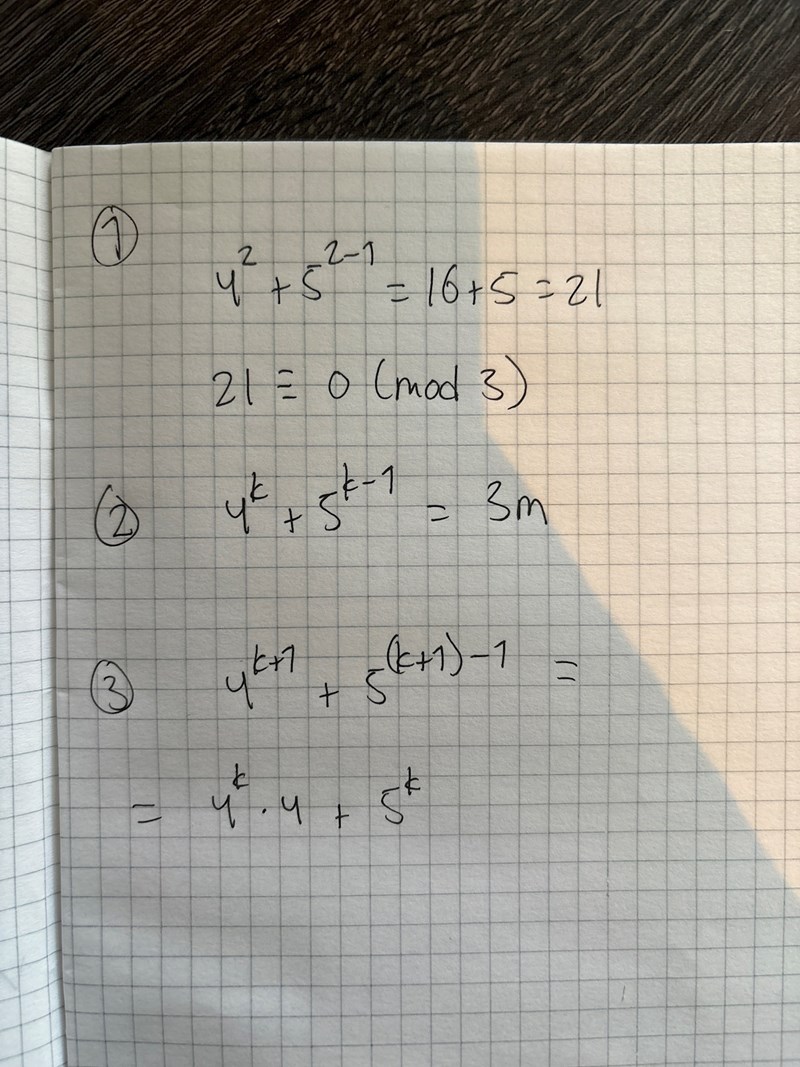 ① 4² + 5²⁻¹ = 16 + 5 = 21
21 ≡ 0 (mod 3)
② 4ᵏ + 5ᵏ⁻¹ = 3m
③ 4ᵏ⁺¹ + 5⁽ᵏ⁺¹⁾⁻¹ =
= 4ᵏ · 4 + 5ᵏ